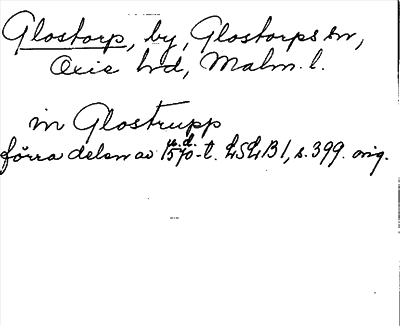 Glostorp, by, Glostorps sn,
Oxie hd, Malm. l.
in Glostrupp
u. d.
förra delen av 1570-t. LSLB1, s. 399. orig.